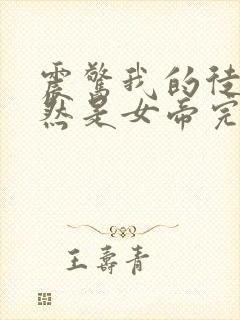 震驚我的徒
然是女帝完
王壽青